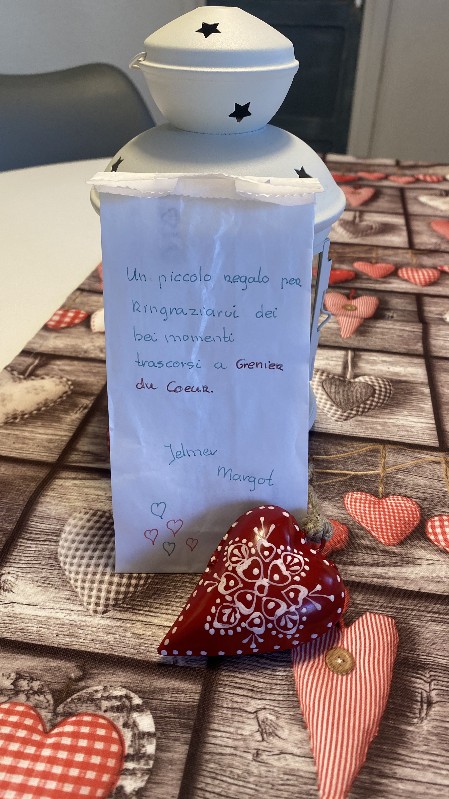 Un piccolo regalo per
Ringraziarvi dei
bei momenti
trascorsi a Grenier
du Coeur.
Jelmer
Margot